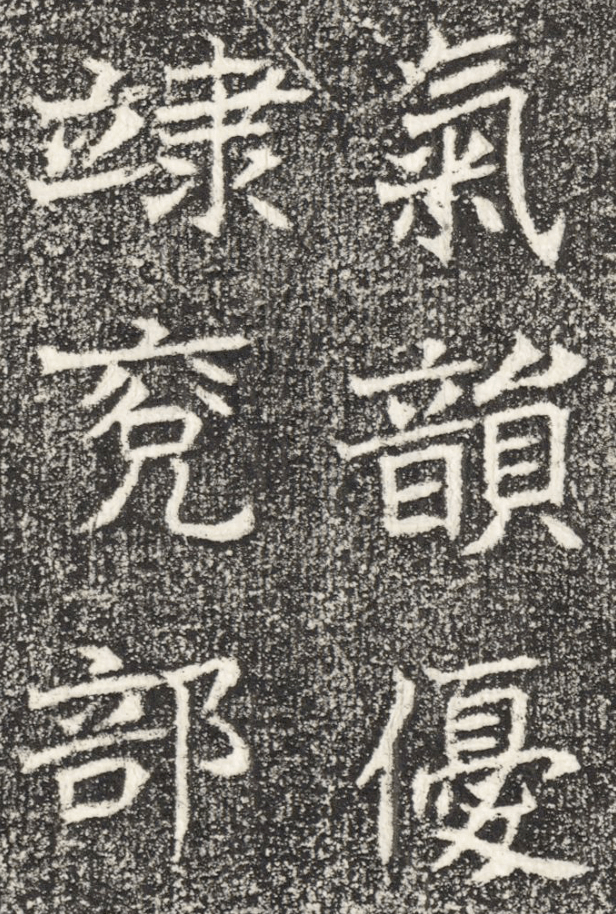 氣韻優
䇐兗部